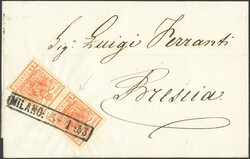 Sig: Luigi Ferranti
Brescia
MILANO